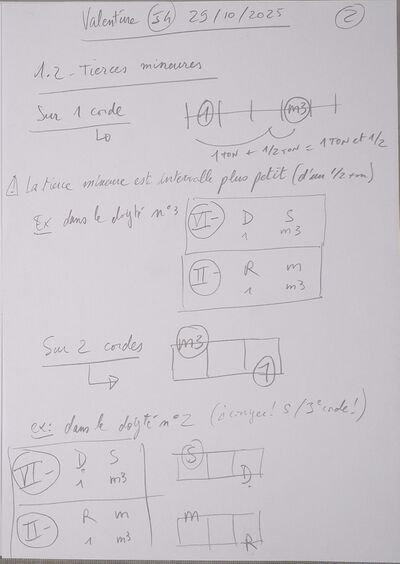 Valentine S4 29/10/2025 2
1.2 - Tierces mineures
Sur 1 corde
1 m3
1 TON + 1/2 TON = 1 TON et 1/2
⚠ La tierce mineure est intervalle plus petit (d'un 1/2 ton)
Ex dans le doigté n°3
VI- D S
1 m3
II- R m
1 m3
Sur 2 cordes
m3
1
ex: dans le doigté n°2 (S/3e corde!)
VI- D S
1 m3
S
D
II- R m
1 m3
m
R